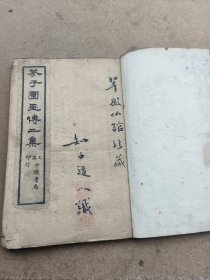 翠微山館珍藏
知白道人識
芥子園畫傳二集
上海
書局
印行